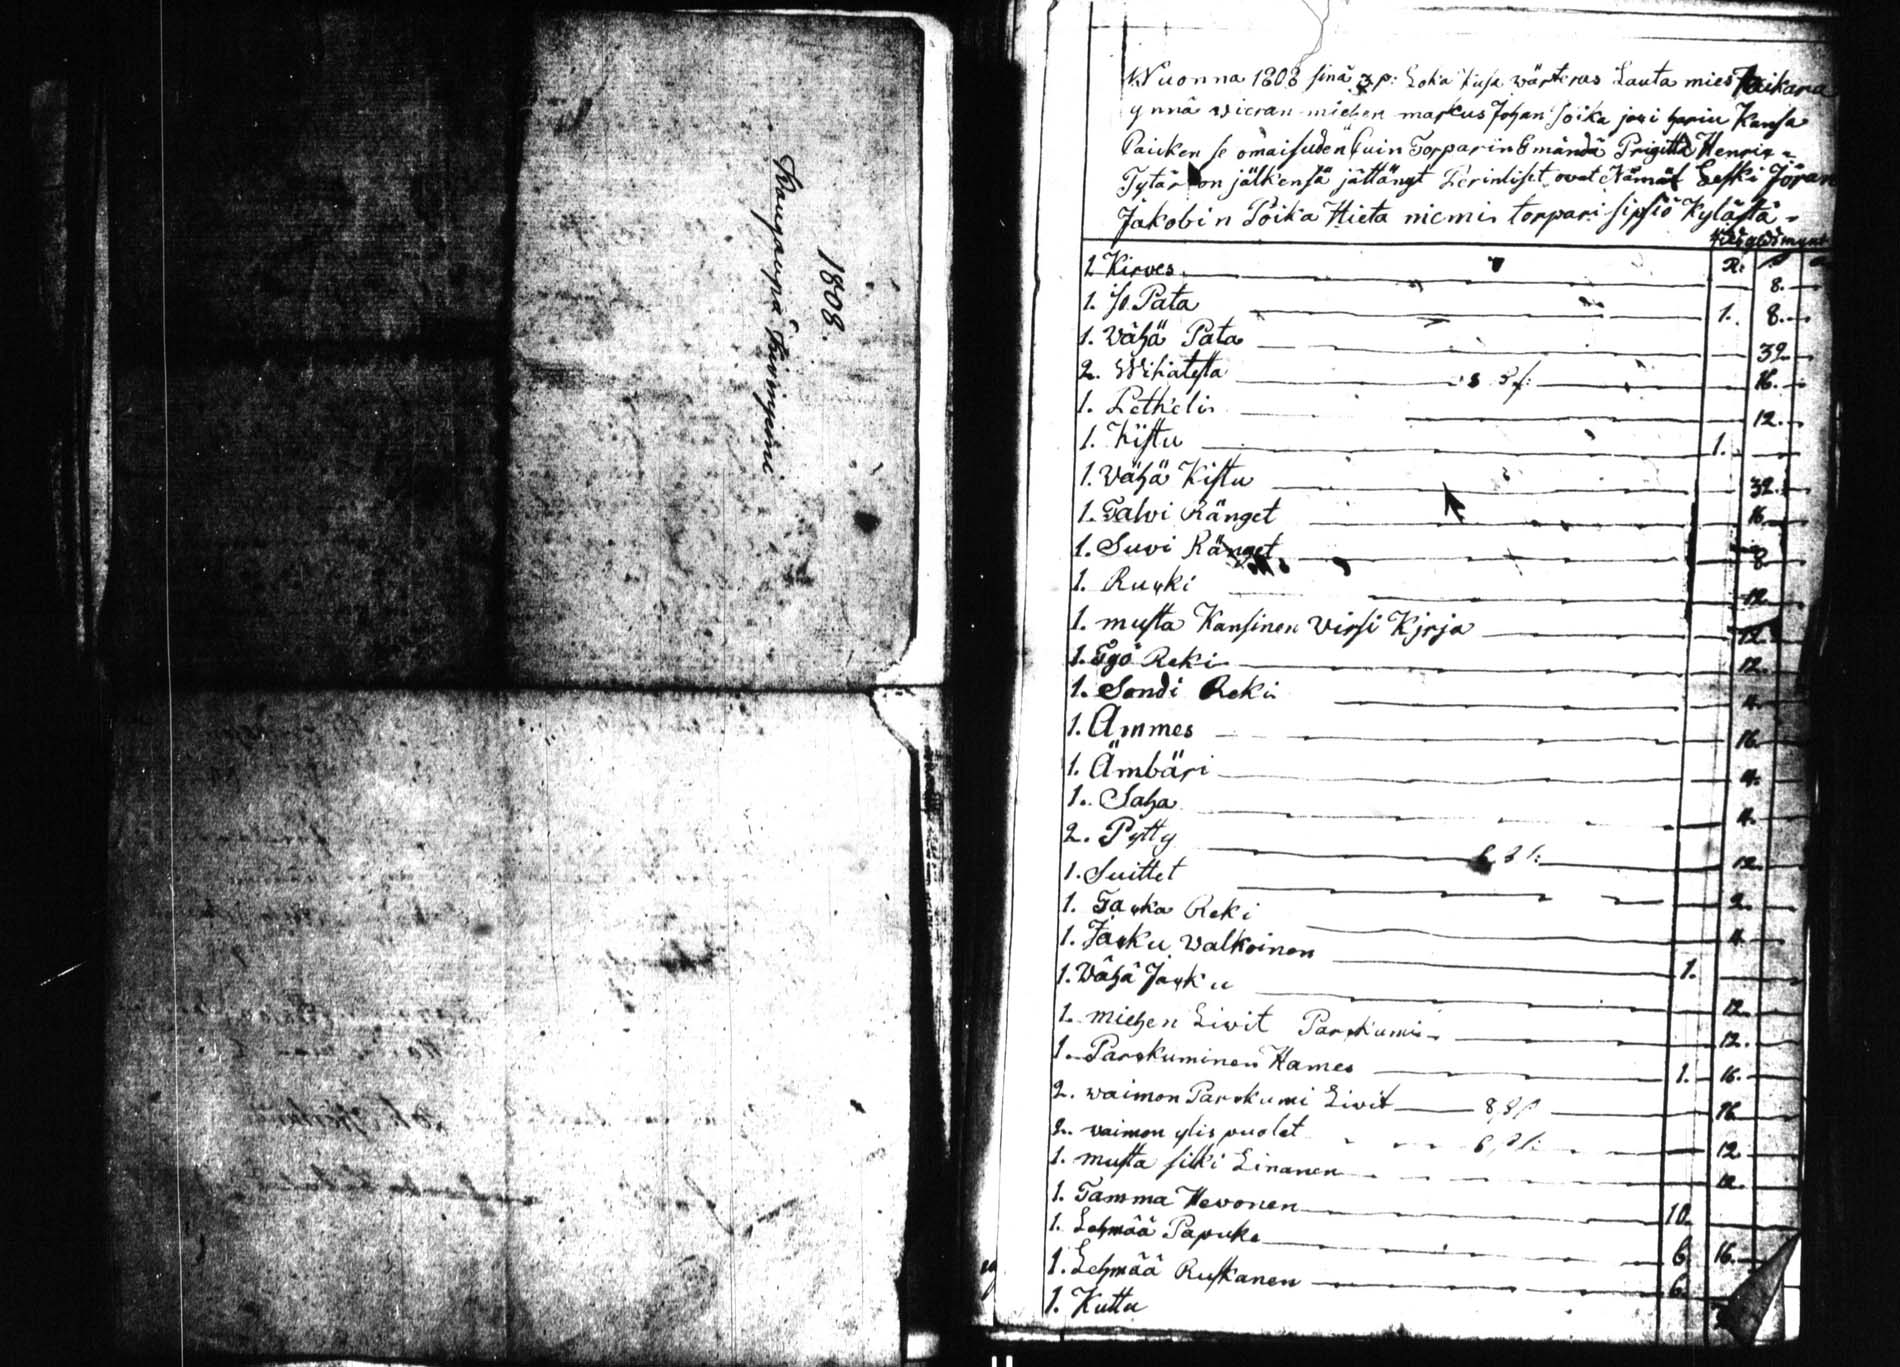 1808.
Kaugaupä Kirinjeini.
Wuonna 1808 sinä 3 p: Loka kusa wärteras Lauta mies Kaikara
ynnä wieran miehen markus Johan Poika josi hariu Kansa
Caicken se omaisuden Cuin Torparin Emändä Prigitta Henrix-
Tytär on jälkensä jättänyt Perinliset ovat Nämät Leski Jöran
Jakobin Poika Hieta niemis torpari sipsiö Kylästä-
Rixgäldz mynt
R: s
1 Kirves 8.
1. Jso Pata 1. 8.
1. vähä Pata 32
2. Wihatesta 8 s: 16.
1. Petkelis 12.
1. Kistu 1.
1. vähä Kistu 32.
1. Talvi Ränget 16
1. Suvi Ränget 8
1. Rucki 12
1. musta Kansinen virsi Kirja 12.
1. Työ Reki 12.
1. Sondi Reki 4.
1. Ammes 16.
1. Ämbäri 4.
1. Saha 4.
2. Pytty 6, 2 s: 12.
1. Suittet 2.
1. Tacka Reki 4.
1. Jacku valkoinen 1.
1. Vähä Jacku 12
1. miehen Livit Parckumis 12.
1. Parckuminen Hames 1. 16.
2. waimon Parckumi Livit 8, 2 s 16
2. vaimon ylis puolet 6, 2 s: 12
1. musta silki Linanen 12.
1. Tamma Hevonen 10.
1. Lehmää Papuke 6 16.
1. Lehmää Ruskanen 6.
1. Kuttu